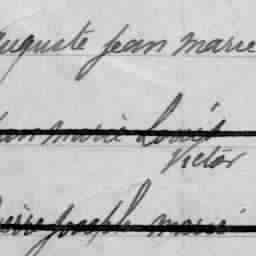 Auguste Jean Marie
Jean Marie Louis
Victor
Pierre Joseph Marie